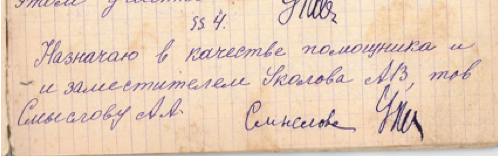 этом
§§ 4.
Назначаю в качестве помощника и
- и заместителем Уколова А.В, тов
Смыслову А.А.
Смыслова